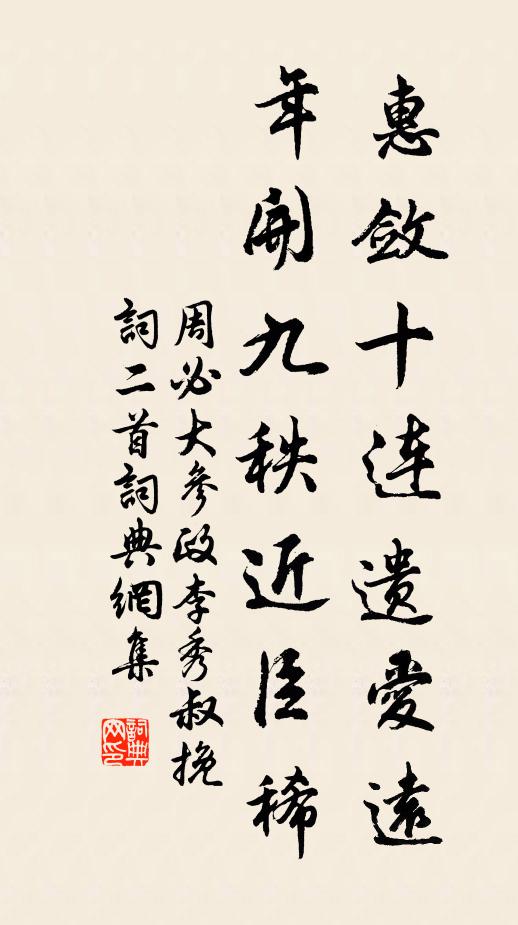 惠斂十連遺愛遠
年開九秩近臣稀
周必大參政李秀叔挽
詞二首詞典網集
詞典网印